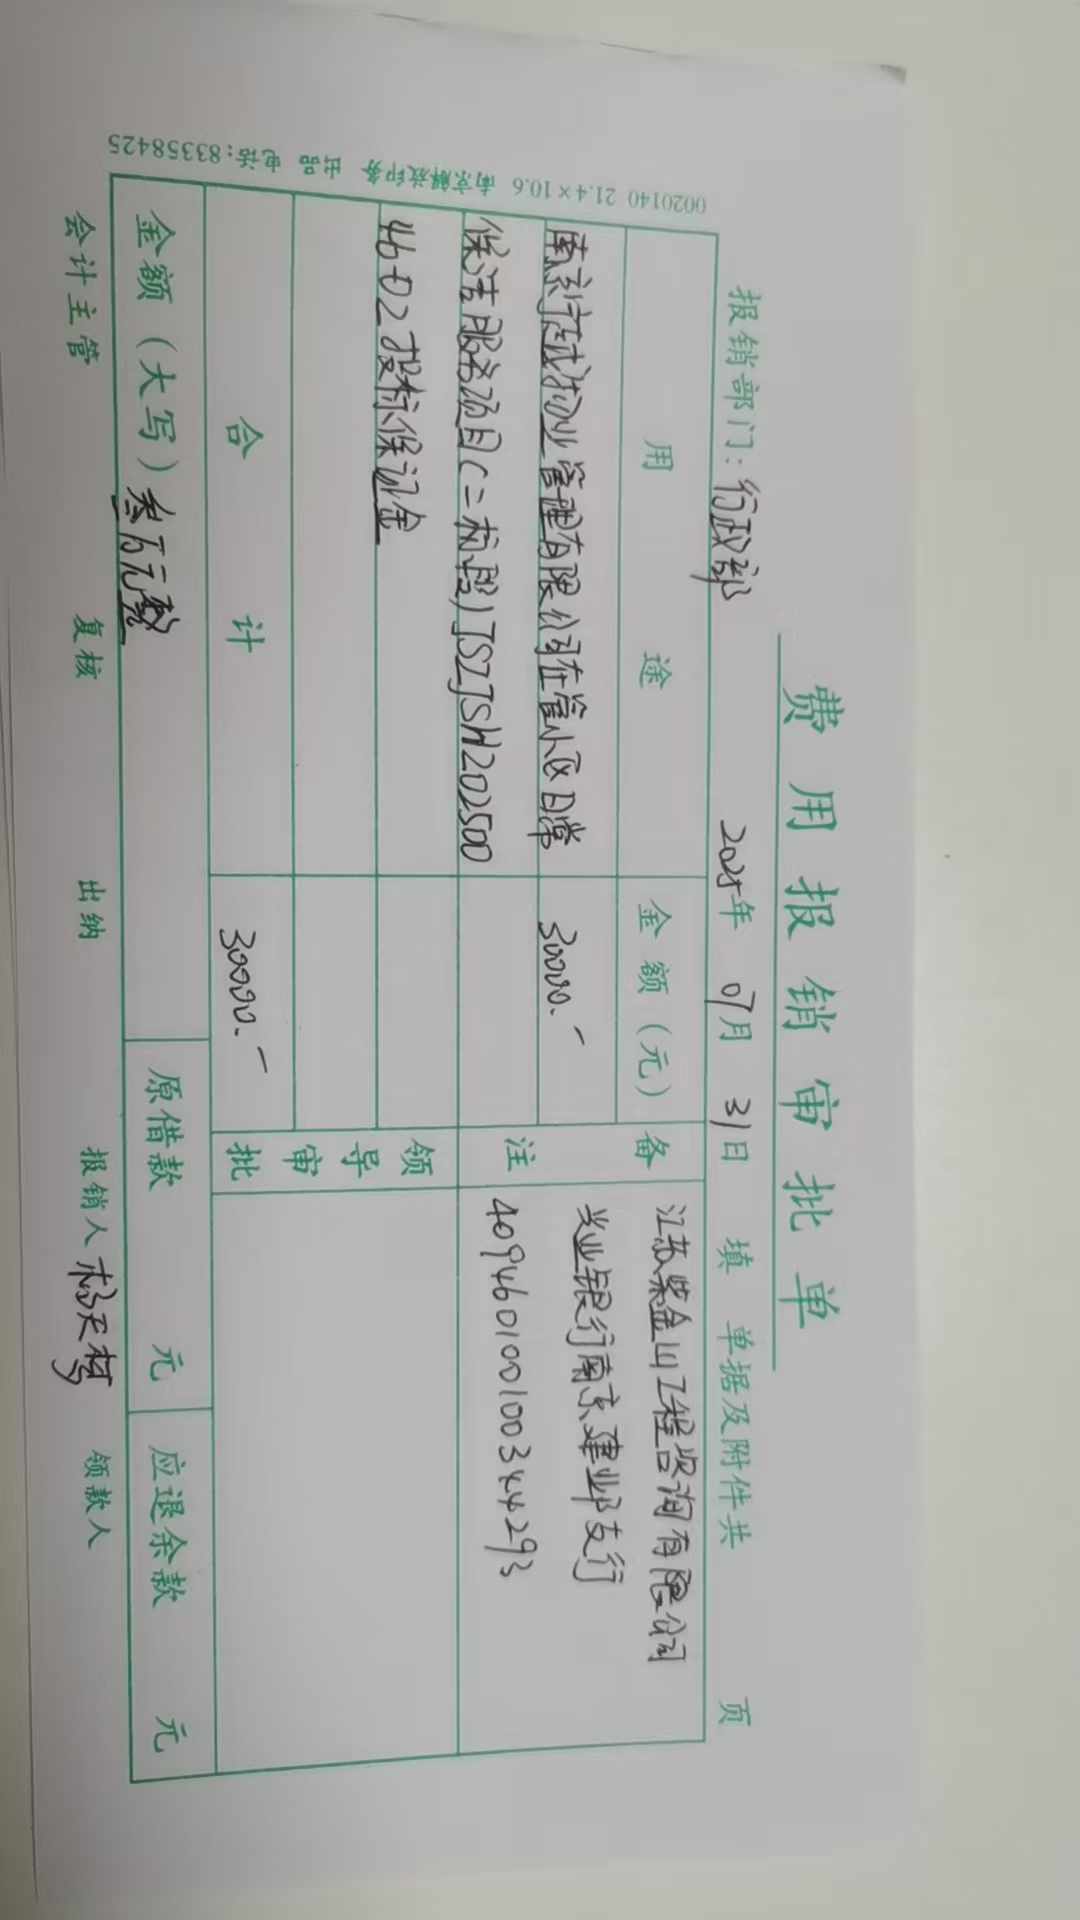 费用报销审批单
报销部门：行政部 2025年 07月 31日 填 单据及附件共 页
用途 金额（元） 备注
南京宁越物业管理有限公司在管小区日常 30000.-
保洁服务项目（二标段）JSZJSH202500
4602投标保证金
江苏紫金山工程咨询有限公司
兴业银行南京建邺支行
409460100100344293
领导审批
合计 30000.-
金额（大写）叁万元整 原借款 元 应退余款 元
会计主管 复核 出纳 报销人 杨天 领款人
0020140 21.4×10.6 南京解放印务 出品 电话：83358425